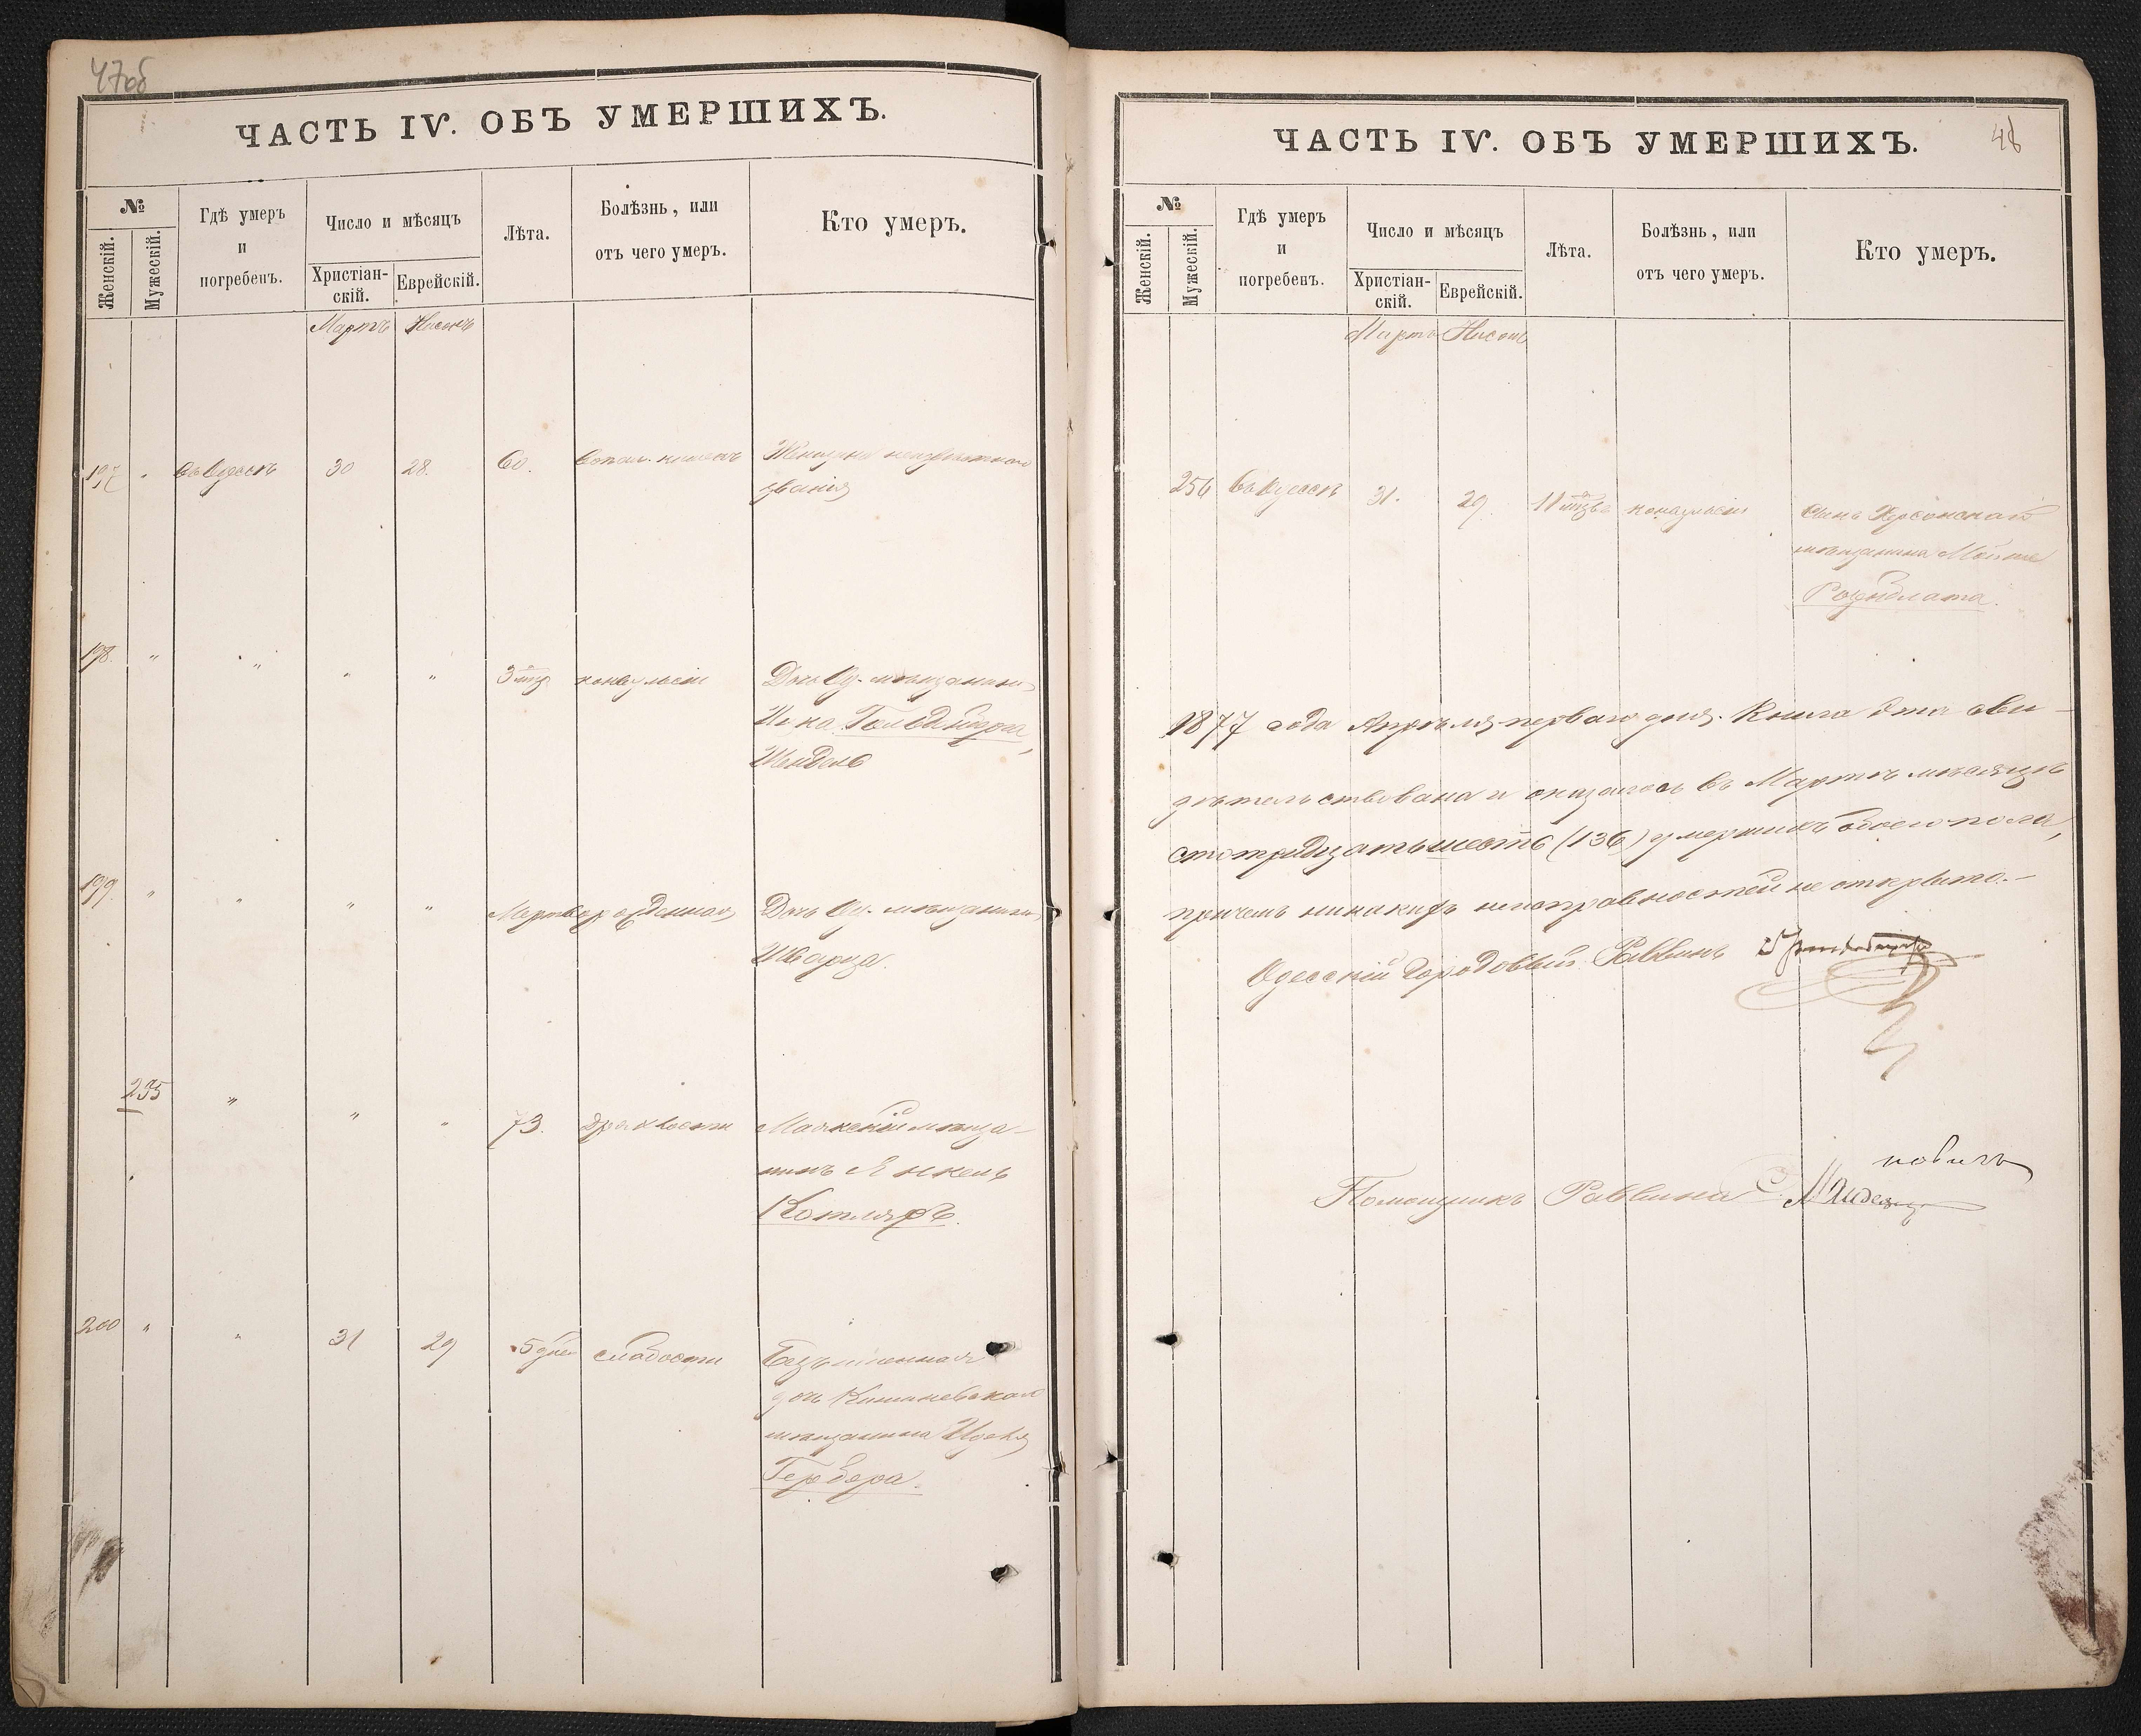 47об
ЧАСТЬ IV. ОБЪ УМЕРШИХЪ.
№
Женскій.
Мужескій.
Гдѣ умеръ
и
погребенъ.
Число и мѣсяцъ
Христіан-
скій.
Еврейскій.
Лѣта.
Болѣзнь, или
отъ чего умеръ.
Кто умеръ.
Мартъ Нисонъ
197 " въ Одессѣ 30 28. 60. Воспал. кишекъ Женщина неизвѣстнаго
званія
198. " " " " 3 мѣс. конвульсіи Дочь Од. мѣщанина
Гольдмера,
Шендль
199. " " " " Мертворожденная Дочь Од. мѣщанина
Шварца.
235 " " " 73. Дряхлости Маякскій мѣща-
нинъ Янкель
Котляръ.
200 " " 31 29 5 дней слабости Безъименная
дочь Кишиневскаго
мѣщанина
Гербера.
48
ЧАСТЬ IV. ОБЪ УМЕРШИХЪ.
№
Женскій.
Мужескій.
Гдѣ умеръ
и
погребенъ.
Число и мѣсяцъ
Христіан-
скій.
Еврейскій.
Лѣта.
Болѣзнь, или
отъ чего умеръ.
Кто умеръ.
Мартъ Нисонъ
256 въ Одессѣ 31. 29. 11 мѣс. конвульсіи Сынъ Херсонскаго
мѣщанина Мойше
Розенблата.
1877 года Апрѣля перваго дня. Книга эта сви-
дѣтельствована и оказалось въ Мартѣ мѣсяцѣ
сто тридцать шесть (136) умершихъ обоего пола,
причемъ никакихъ неисправностей не открыто.-
Одесскій Городовый Раввинъ
Помощникъ Раввина